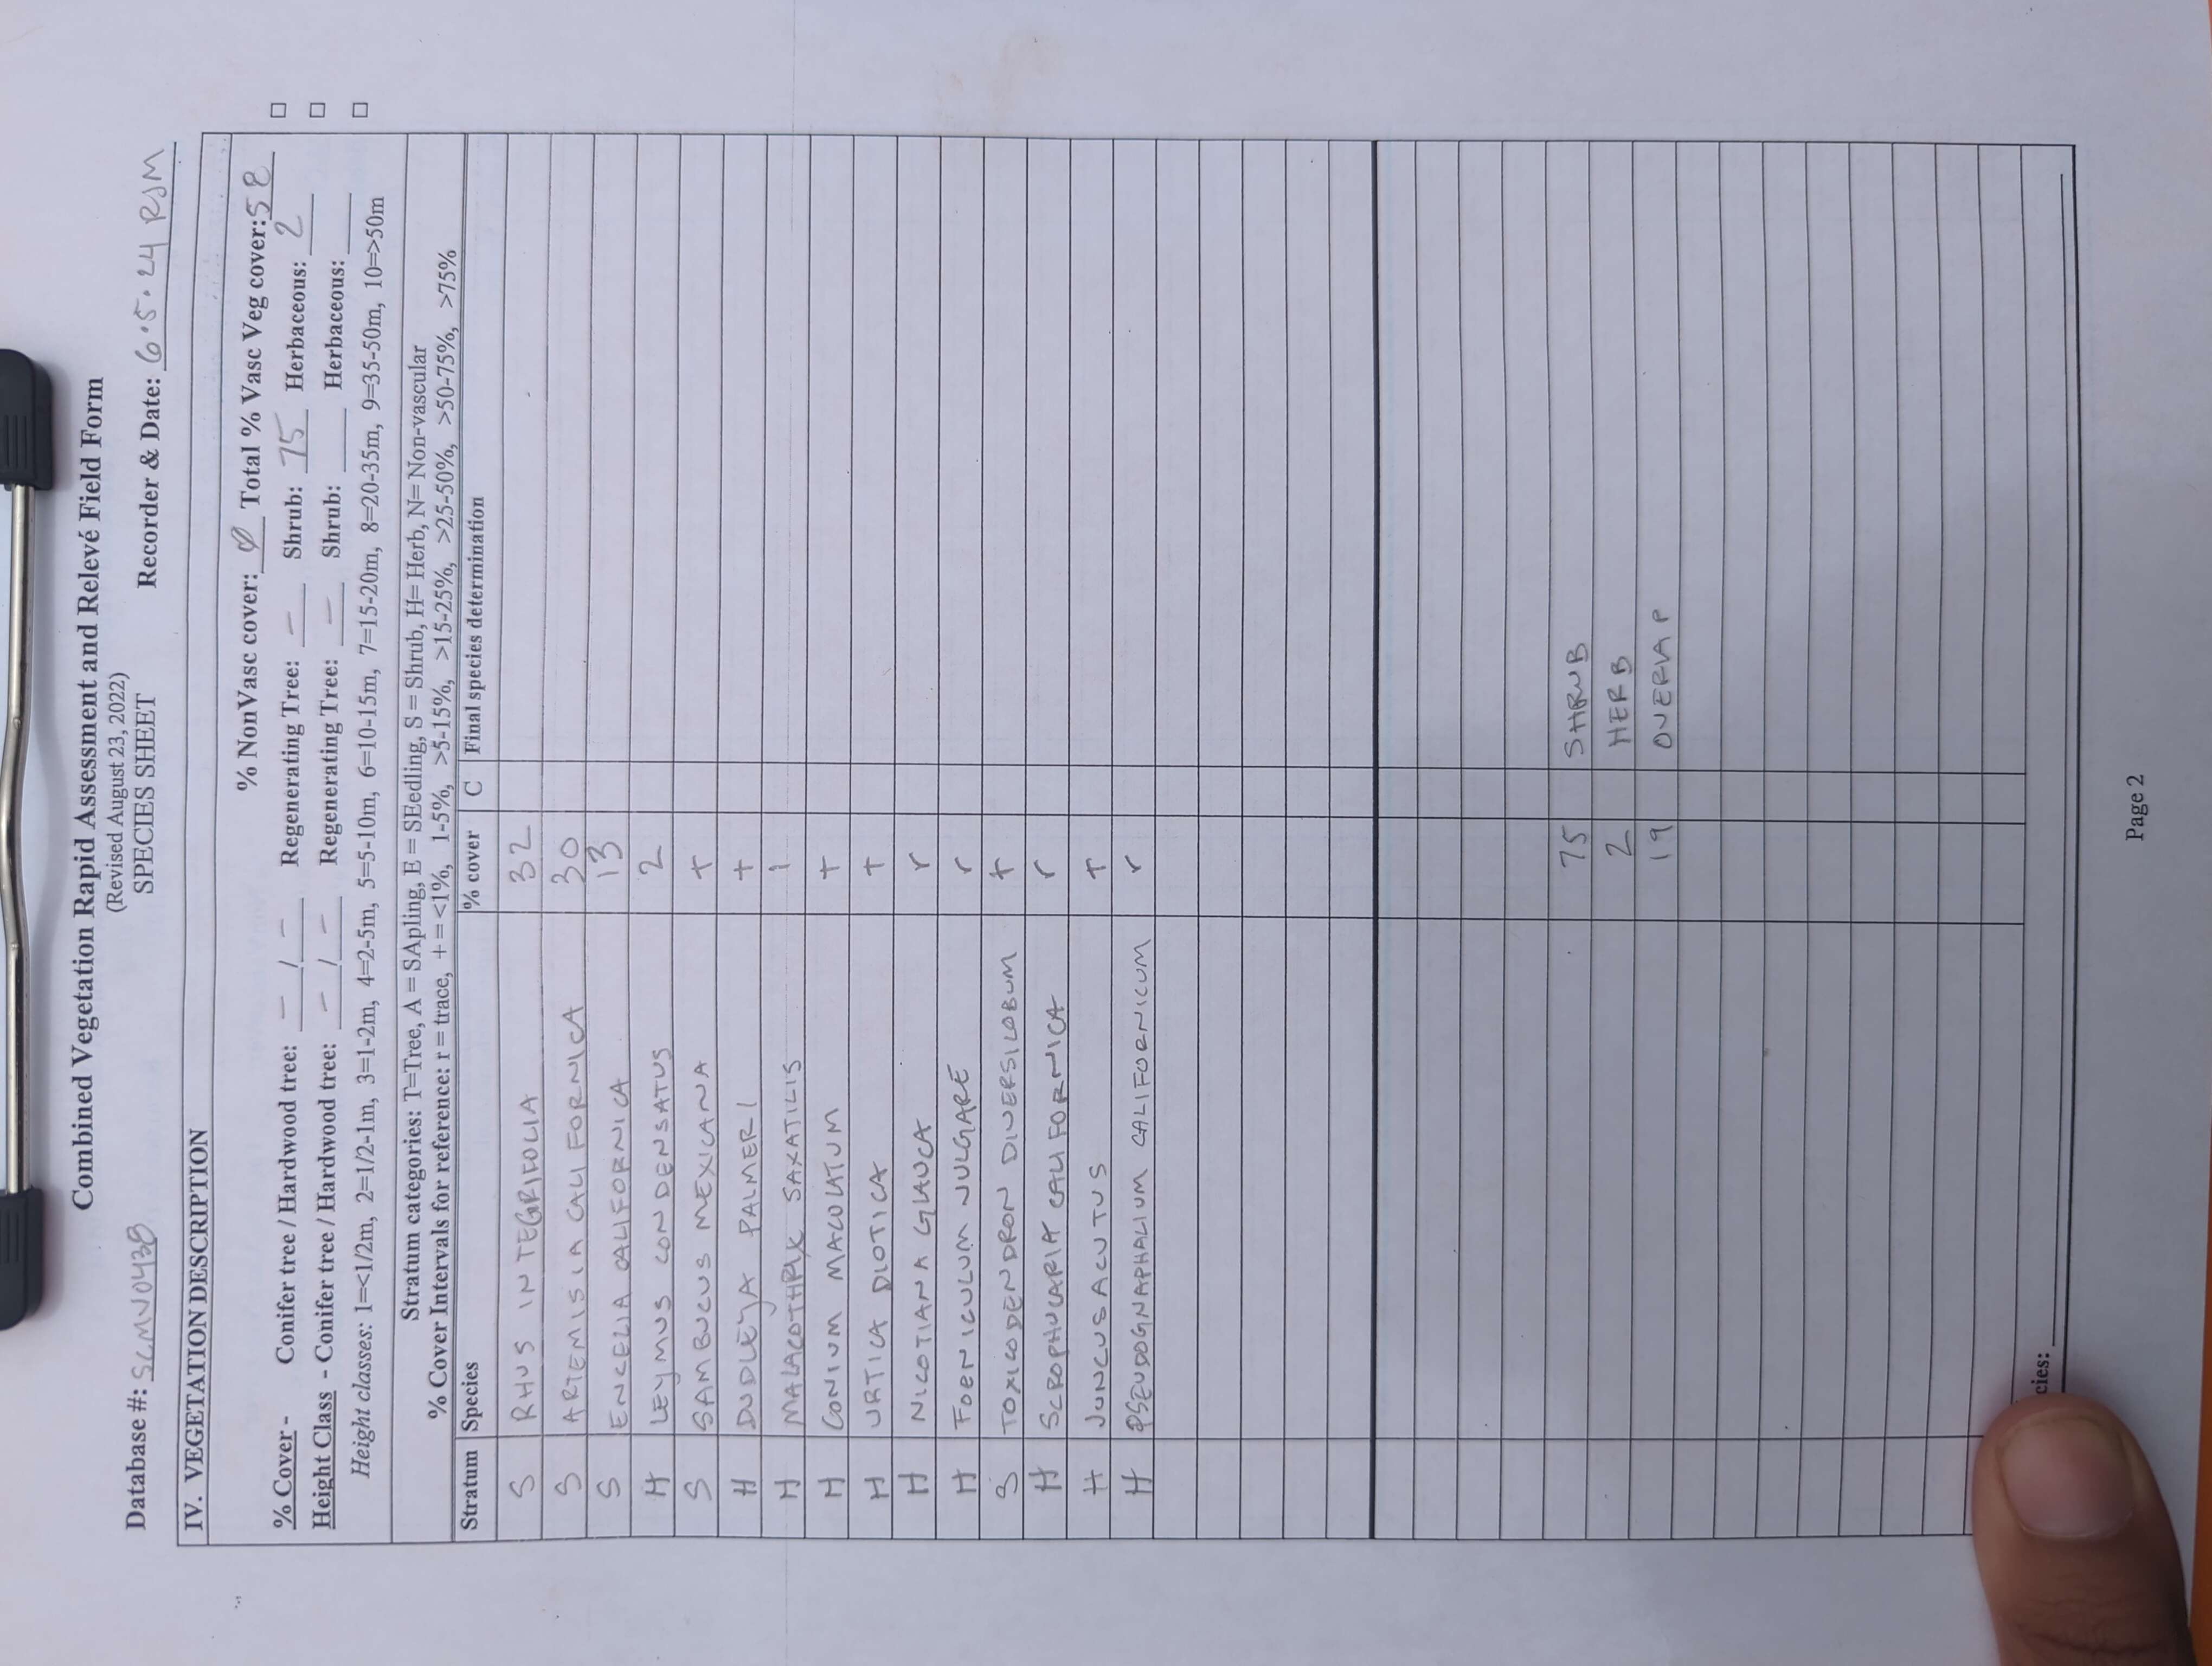 Combined Vegetation Rapid Assessment and Relevé Field Form
(Revised August 23, 2022)
SPECIES SHEET
Database #: SCMV0438 Recorder & Date: 6.5.24 RJM
IV. VEGETATION DESCRIPTION
% NonVasc cover: Ø Total % Vasc Veg cover: 58
% Cover - Conifer tree / Hardwood tree: — / — Regenerating Tree: — Shrub: 75 Herbaceous: 2 □
Height Class - Conifer tree / Hardwood tree: — / — Regenerating Tree: — Shrub: Herbaceous: □
Height classes: 1=<1/2m, 2=1/2-1m, 3=1-2m, 4=2-5m, 5=5-10m, 6=10-15m, 7=15-20m, 8=20-35m, 9=35-50m, 10=>50m □
Stratum categories: T=Tree, A = SApling, E = SEedling, S = Shrub, H= Herb, N= Non-vascular
% Cover Intervals for reference: r = trace, + = <1%, 1-5%, >5-15%, >15-25%, >25-50%, >50-75%, >75%
Stratum Species % cover C Final species determination
S RHUS INTEGRIFOLIA 32
S ARTEMISIA CALIFORNICA 30
S ENCELIA CALIFORNICA 13
H LEYMUS CONDENSATUS 2
S SAMBUCUS MEXICANA +
H DUDLEYA PALMERI +
H MALACOTHRIX SAXATILIS 1
H CONIUM MACULATUM +
H URTICA DIOTICA +
H NICOTIANA GLAUCA r
H FOENICULUM VULGARE r
S TOXICODENDRON DIVERSILOBUM +
H SCROPHULARIA CALIFORNICA r
H JUNCUS ACUTUS +
H PSEUDOGNAPHALIUM CALIFORNICUM r
75 SHRUB
2 HERB
19 OVERLAP
cies:
Page 2